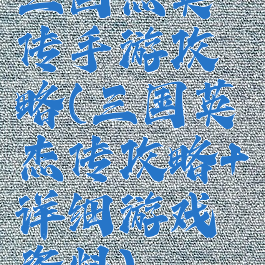 三国杰英
传手游攻
略(三国英
杰传攻略+
详细游戏